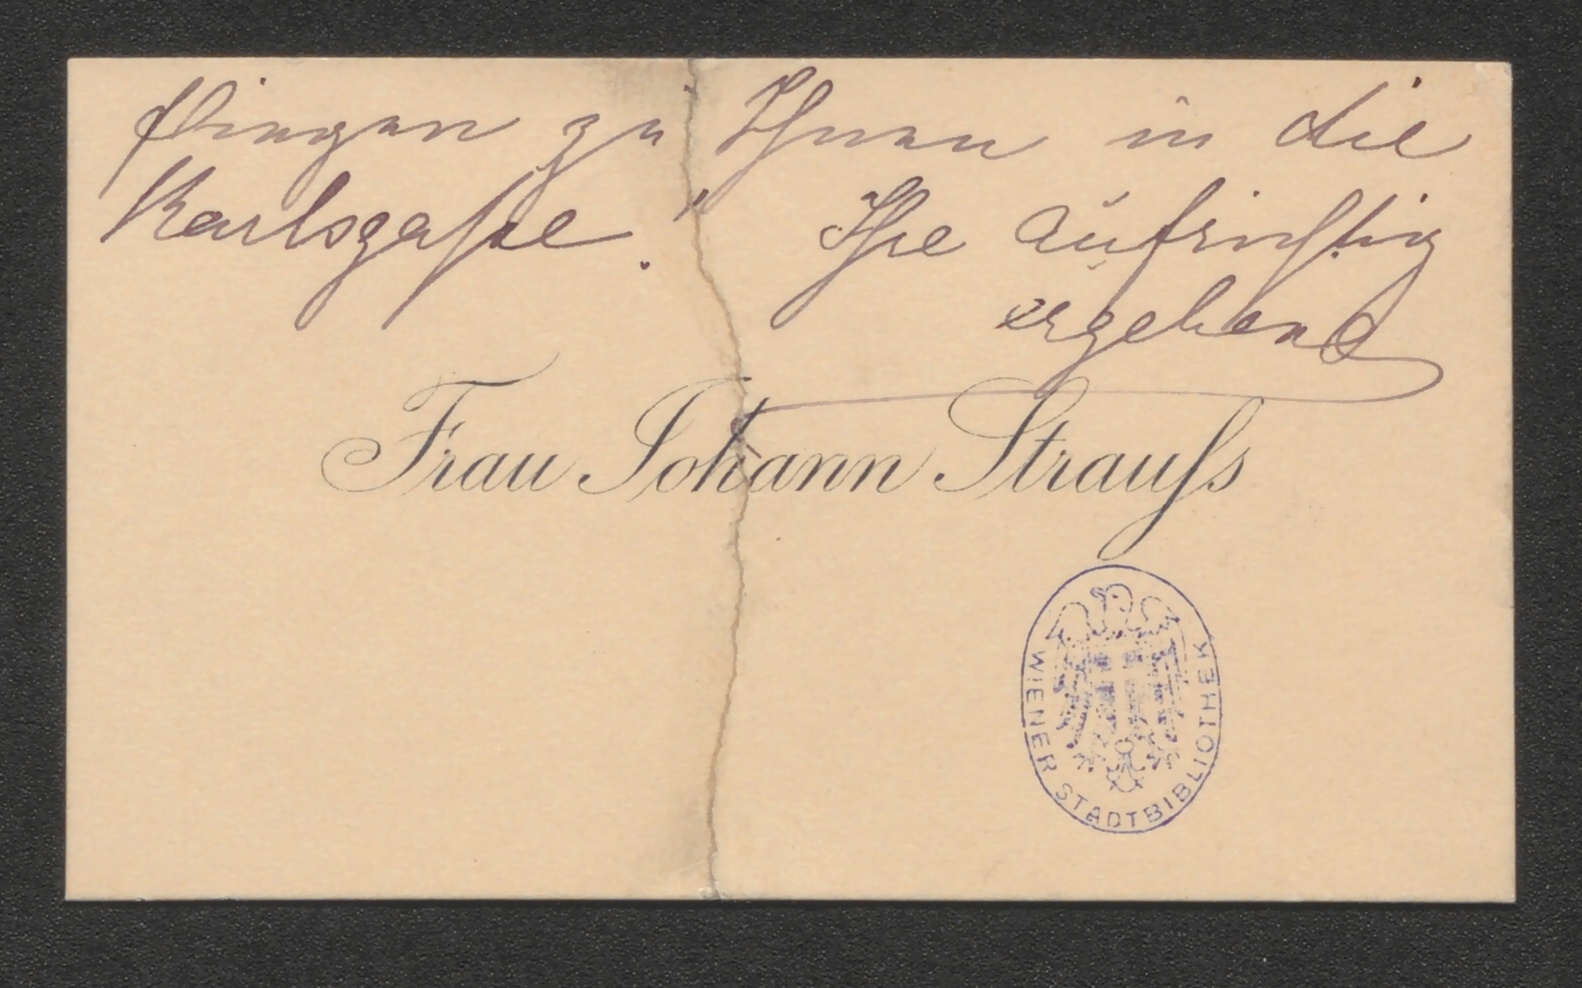 fliegen zu Ihnen in die
Karlsgasse!" Ihre aufrichtig
ergebene
Frau Johann Strauss
WIENER STADTBIBLIOTHEK